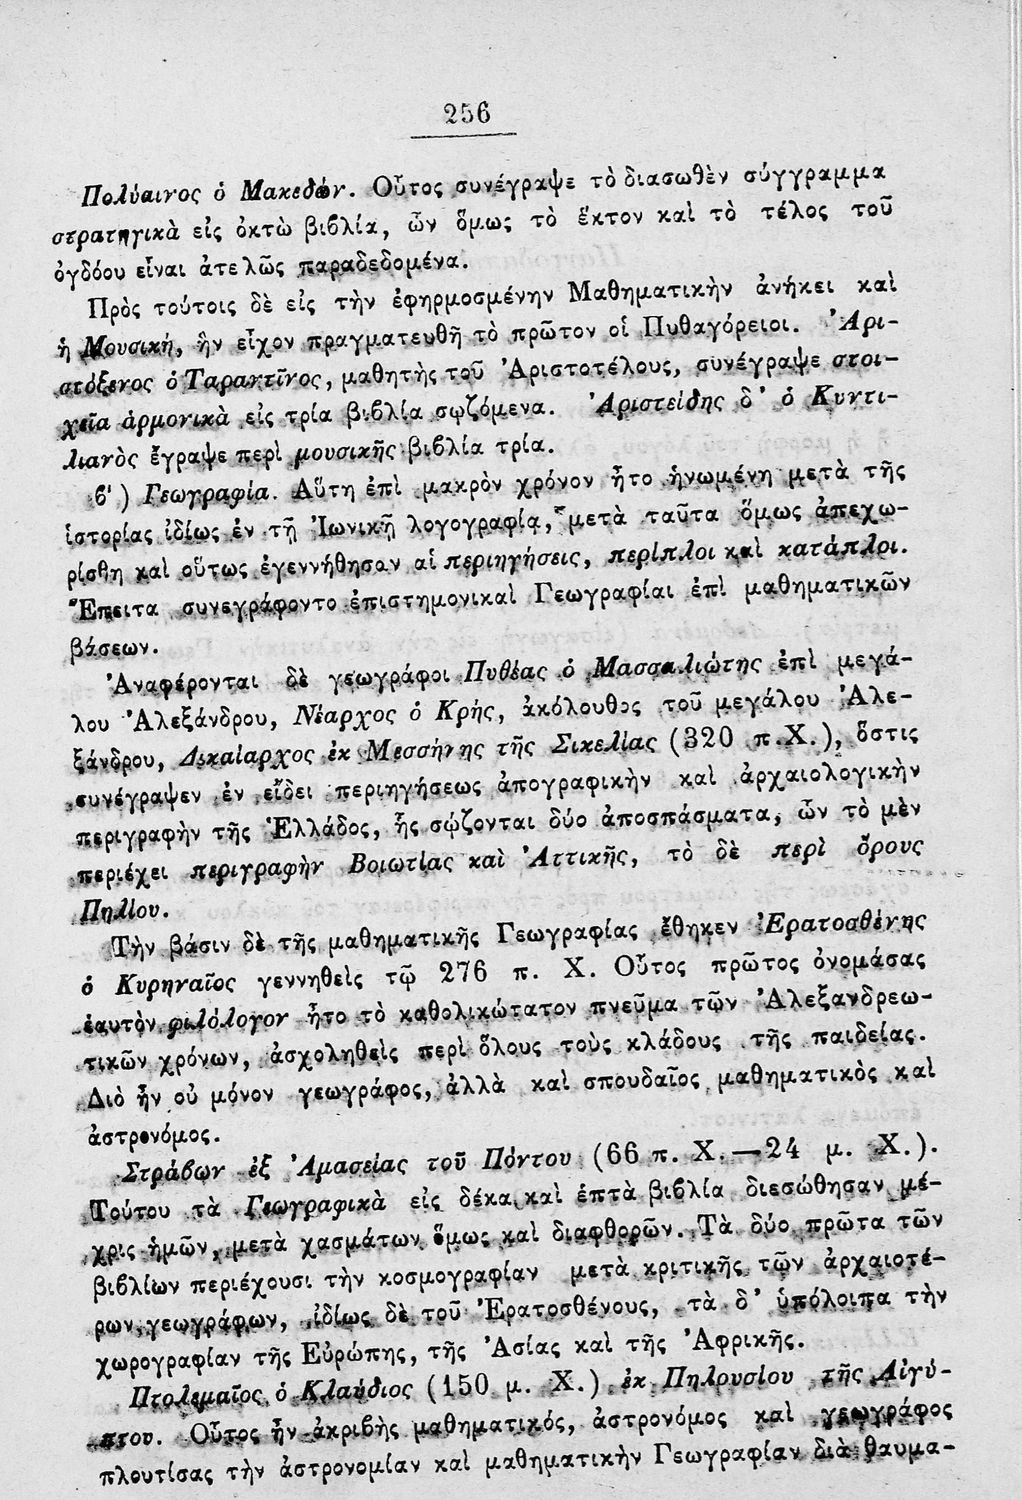 256
Πολύαινος ὁ Μακεδών. Οὗτος συνέγραψε τὸ διασωθὲν σύγγραμμα
στρατηγικὰ εἰς ὀκτὼ βιβλία, ὧν ὅμως τὸ ἕκτον καὶ τὸ τέλος τοῦ
ὀγδόου εἶναι ἀτελῶς παραδεδομένα.
Πρὸς τούτοις δὲ εἰς τὴν ἐφηρμοσμένην Μαθηματικὴν ἀνήκει καὶ
ἡ Μουσική, ἣν εἶχον πραγματευθῆ τὸ πρῶτον οἱ Πυθαγόρειοι. Ἀρι-
στόξενος ὁ Ταραντῖνος, μαθητὴς τοῦ Ἀριστοτέλους, συνέγραψε στοι-
χεῖα ἁρμονικὰ εἰς τρία βιβλία σῳζόμενα. Ἀριστείδης δ' ὁ Κυντι-
λιανὸς ἔγραψε περὶ μουσικῆς βιβλία τρία.
ϐ') Γεωγραφία. Αὕτη ἐπὶ μακρὸν χρόνον ἦτο ἡνωμένη μετὰ τῆς
ἱστορίας ἰδίως ἐν τῇ Ἰωνικῇ λογογραφίᾳ, μετὰ ταῦτα ὅμως ἀπεχω-
ρίσθη καὶ οὕτως ἐγεννήθησαν αἱ περιηγήσεις, περίπλοι καὶ κατάπλοι.
Ἔπειτα συνεγράφοντο ἐπιστημονικαὶ Γεωγραφίαι ἐπὶ μαθηματικῶν
βάσεων.
Ἀναφέρονται δὲ γεωγράφοι Πυθέας ὁ Μασσαλιώτης ἐπὶ μεγά-
λου Ἀλεξάνδρου, Νέαρχος ὁ Κρής, ἀκόλουθος τοῦ μεγάλου Ἀλε-
ξάνδρου, Δικαίαρχος ἐκ Μεσσήνης τῆς Σικελίας (320 π.Χ.), ὅστις
συνέγραψεν ἐν εἴδει περιηγήσεως ἀπογραφικὴν καὶ ἀρχαιολογικὴν
περιγραφὴν τῆς Ἑλλάδος, ἧς σῴζονται δύο ἀποσπάσματα, ὧν τὸ μὲν
περιέχει περιγραφὴν Βοιωτίας καὶ Ἀττικῆς, τὸ δὲ περὶ ὄρους
Πηλίου.
Τὴν βάσιν δὲ τῆς μαθηματικῆς Γεωγραφίας ἔθηκεν Ἐρατοσθένης
ὁ Κυρηναῖος γεννηθεὶς τῷ 276 π. Χ. Οὗτος πρῶτος ὀνομάσας
ἑαυτὸν φιλόλογον ἦτο τὸ καθολικώτατον πνεῦμα τῶν Ἀλεξανδρεω-
τικῶν χρόνων, ἀσχοληθεὶς περὶ ὅλους τοὺς κλάδους τῆς παιδείας.
Διὸ ἦν οὐ μόνον γεωγράφος, ἀλλὰ καὶ σπουδαῖος μαθηματικὸς καὶ
ἀστρονόμος.
Στράβων ἐξ Ἀμασείας τοῦ Πόντου (66 π. Χ.—24 μ. Χ.).
Τούτου τὰ Γεωγραφικὰ εἰς δέκα καὶ ἑπτὰ βιβλία διεσώθησαν μέ-
χρις ἡμῶν, μετὰ χασμάτων ὅμως καὶ διαφθορῶν. Τὰ δύο πρῶτα τῶν
βιβλίων περιέχουσι τὴν κοσμογραφίαν μετὰ κριτικῆς τῶν ἀρχαιοτέ-
ρων γεωγράφων, ἰδίως δὲ τοῦ Ἐρατοσθένους, τὰ δ' ὑπόλοιπα τὴν
χωρογραφίαν τῆς Εὐρώπης, τῆς Ἀσίας καὶ τῆς Ἀφρικῆς.
Πτολεμαῖος ὁ Κλαύδιος (150 μ. Χ.) ἐκ Πηλουσίου τῆς Αἰγύ-
πτου. Οὗτος ἦν ἀκριβὴς μαθηματικός, ἀστρονόμος καὶ γεωγράφος
πλουτίσας τὴν ἀστρονομίαν καὶ μαθηματικὴν Γεωγραφίαν διὰ θαυμα-